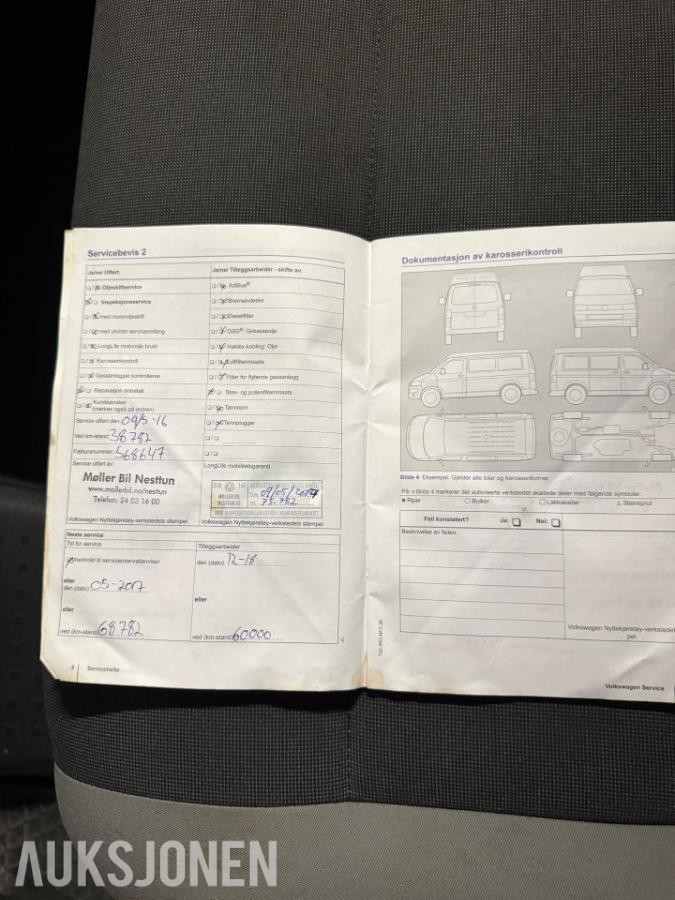 Servicebevis 2
Ja/nei Utført:
Oljeskiftservice
Inspeksjonsservice
med motoroljeskift
med utvidet serviceomfang
LongLife motorolje brukt
Karosserikontroll
Gassanlegget kontrolleres
Reparasjon anbefalt
Kundeønsker
(merkes også på ordren)
Service utført den: 09/5-16
Ved km-stand: 38782
Fakturanummer: 568647
Service utført av:
Møller Bil Nesttun
www.mollerbil.no/nesttun
Telefon: 24 03 16 00
Volkswagen Nyttekjøretøy-verkstedets stempel
Ja/nei Tilleggsarbeider - skifte av:
AdBlue®
Bremsevæske
Dieselfilter
DSG® Girkasseolje
Haldex-kobling: Olje
Luftfilterinnsats
Filter for flytende gassanlegg
Støv- og pollenfilterinnsats
Tannreim
Tennplugger
LongLife mobilitetsgaranti
MØLLER BIL
NESTTUN AS
Volkswagen Nyttekjøretøy-verkstedets stempel
Neste service
Tid for service
i henhold til serviceintervallanviser
eller
den (dato) 05-2017
eller
ved (km-stand) 68782
Tilleggsarbeider
den (dato) 12-18
eller
ved (km-stand) 60000
8 Servicehefte
Dokumentasjon av karosserikontroll
Bilde 4 Eksempel. Gjelder alle biler og karosseriformer.
På » Bilde 4 markerer det autoriserte verkstedet skadede deler med følgende symboler:
Riper Bulker Lakkskader Steinsprut
Feil konstatert? Ja: Nei:
Beskrivelse av feilen:
Volkswagen Nyttekjøretøy-verkstedets
pel
Volkswagen Service
AUKSJONEN